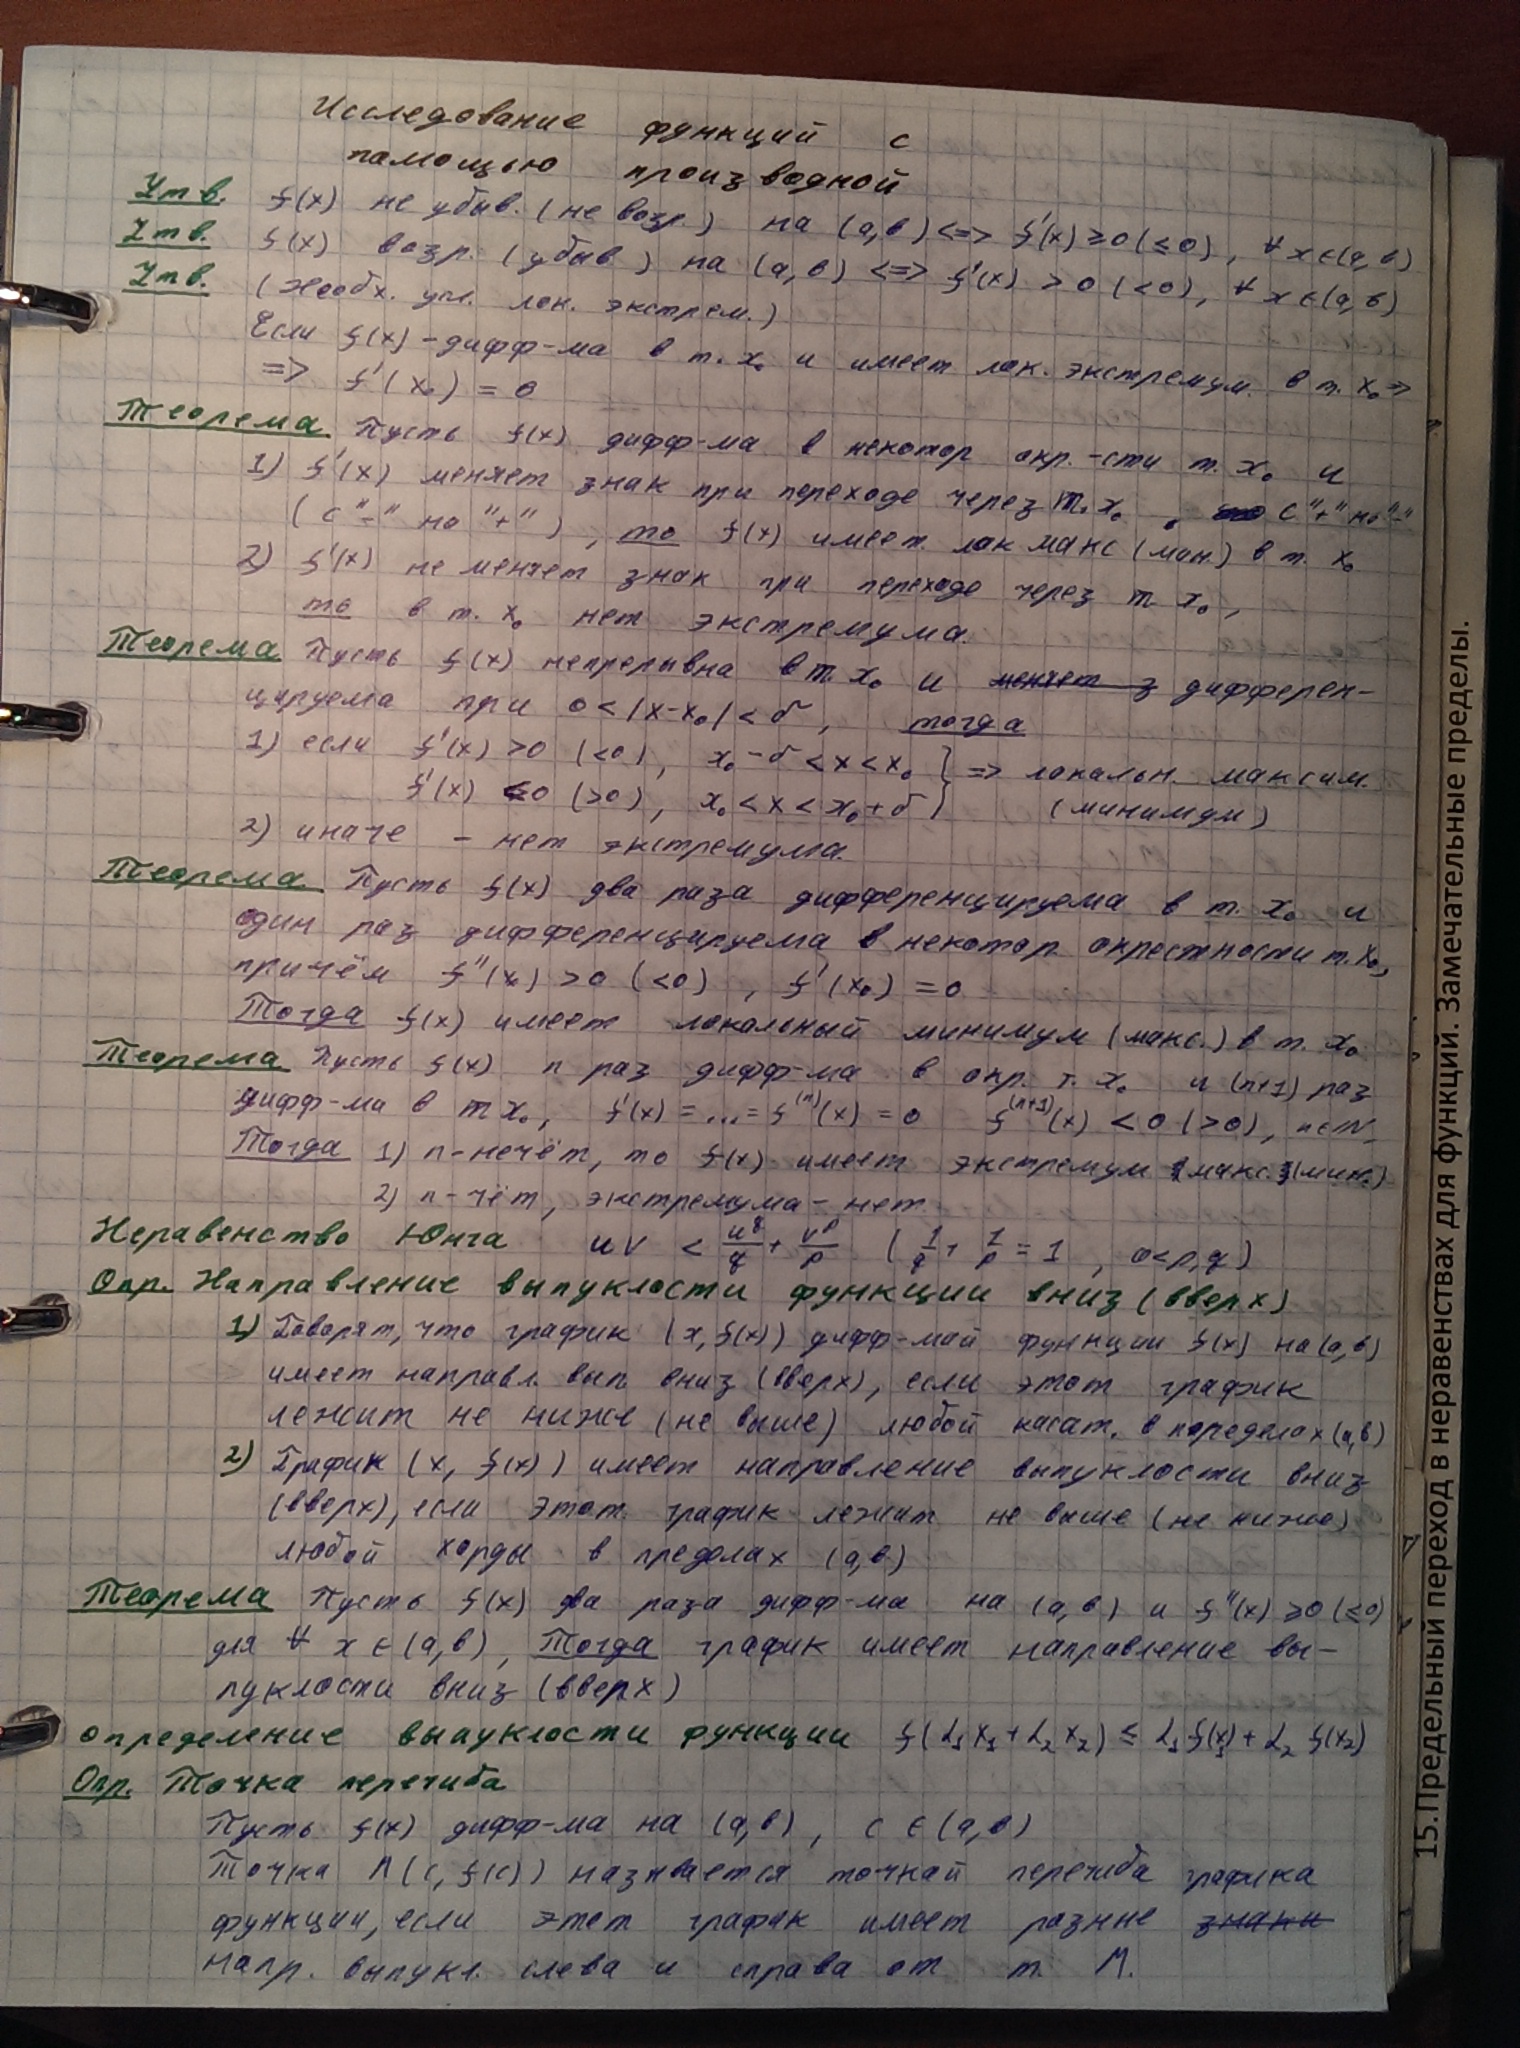 Исследование функций с
помощью производной
Утв. f(x) не убыв. (не возр.) на (a,b) <=> f'(x) ≥ 0 (≤ 0), ∀ x ∈ (a, b)
Утв. f(x) возр. (убыв) на (a, b) <=> f'(x) > 0 (<0), ∀ x ∈ (a, b)
Утв. (Необх. усл. лок. экстрем.)
Если f(x) - дифф-ма в т. x₀ и имеет лок. экстремум. в т. x₀ =>
=> f'(x₀) = 0
Теорема Пусть f(x) дифф-ма в некотор окр.-сти т. x₀ и
1) f'(x) меняет знак при переходе через т. x₀, с "+" на "-"
(с "-" на "+"), то f(x) имеет лок макс (мин.) в т. x₀
2) f'(x) не меняет знак при переходе через т x₀,
то в т. x₀ нет экстремума.
Теорема Пусть f(x) непрерывна в т. x₀ и меняет з дифферен-
цируема при 0 < |x-x₀| < δ, тогда
1) если f'(x) > 0 (<0), x₀ - δ < x < x₀ } => локальн. максим.
f'(x) < 0 (>0), x₀ < x < x₀ + δ } (минимум)
2) иначе - нет экстремума.
Теорема Пусть f(x) два раза дифференцируема в т. x₀ и
один раз дифференцируема в некотор. окрестности т. x₀,
причём f''(x₀) > 0 (<0), f'(x₀) = 0
Тогда f(x) имеет локальный минимум (макс.) в т. x₀
Теорема Пусть f(x) n раз дифф-ма в окр. т. x₀ и (n+1) раз
дифф-ма в т x₀, f'(x) = ... = f⁽ⁿ⁾(x) = 0 f⁽ⁿ⁺¹⁾(x) < 0 (>0), n∈N,
Тогда 1) n-нечёт, то f(x) имеет экстремум макс. (мин.)
2) n-чёт, экстремума - нет.
Неравенство Юнга uv < u^q/q + v^p/p (1/q + 1/p = 1, 0<p,q)
Опр. Направление выпуклости функции вниз (вверх)
1) Говорят, что график (x, f(x)) дифф-май функции f(x) на (a, b)
имеет направл. вып. вниз (вверх), если этот график
лежит не ниже (не выше) любой касат. в пределах (a,b)
2) График (x, f(x)) имеет направление выпуклости вниз
(вверх), если этот график лежит не выше (не ниже)
любой хорды в пределах (a, b)
Теорема Пусть f(x) два раза дифф-ма на (a, b) и f''(x) ≥ 0 (≤ 0)
для ∀ x ∈ (a, b), Тогда график имеет направление вы-
пуклости вниз (вверх)
Определение выпуклости функции f(α₁x₁ + α₂x₂) ≤ α₁f(x₁) + α₂ f(x₂)
Опр. Точка перегиба
Пусть f(x) дифф-ма на (a, b), c ∈ (a, b)
Точка M(c, f(c)) называется точкай перегиба графика
функции, если этот график имеет разные знаки
напр. выпукл. слева и справа от т. M.
15.Предельный переход в неравенствах для функций. Замечательные пределы.